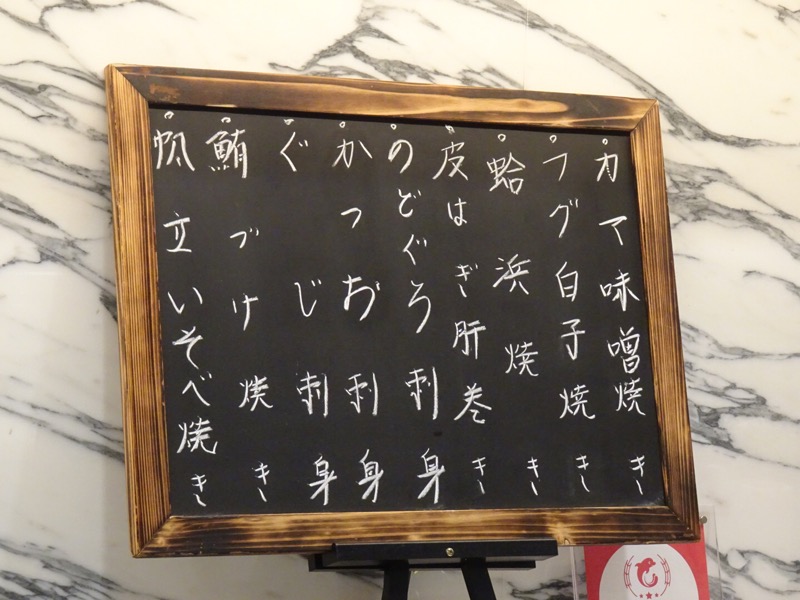 カマ味噌焼き
フグ白子焼き
蛤浜焼き
皮はぎ肝巻き
のどぐろ刺身
かつお刺身
ぐじ刺身
鮪づけ焼き
帆立いそべ焼き